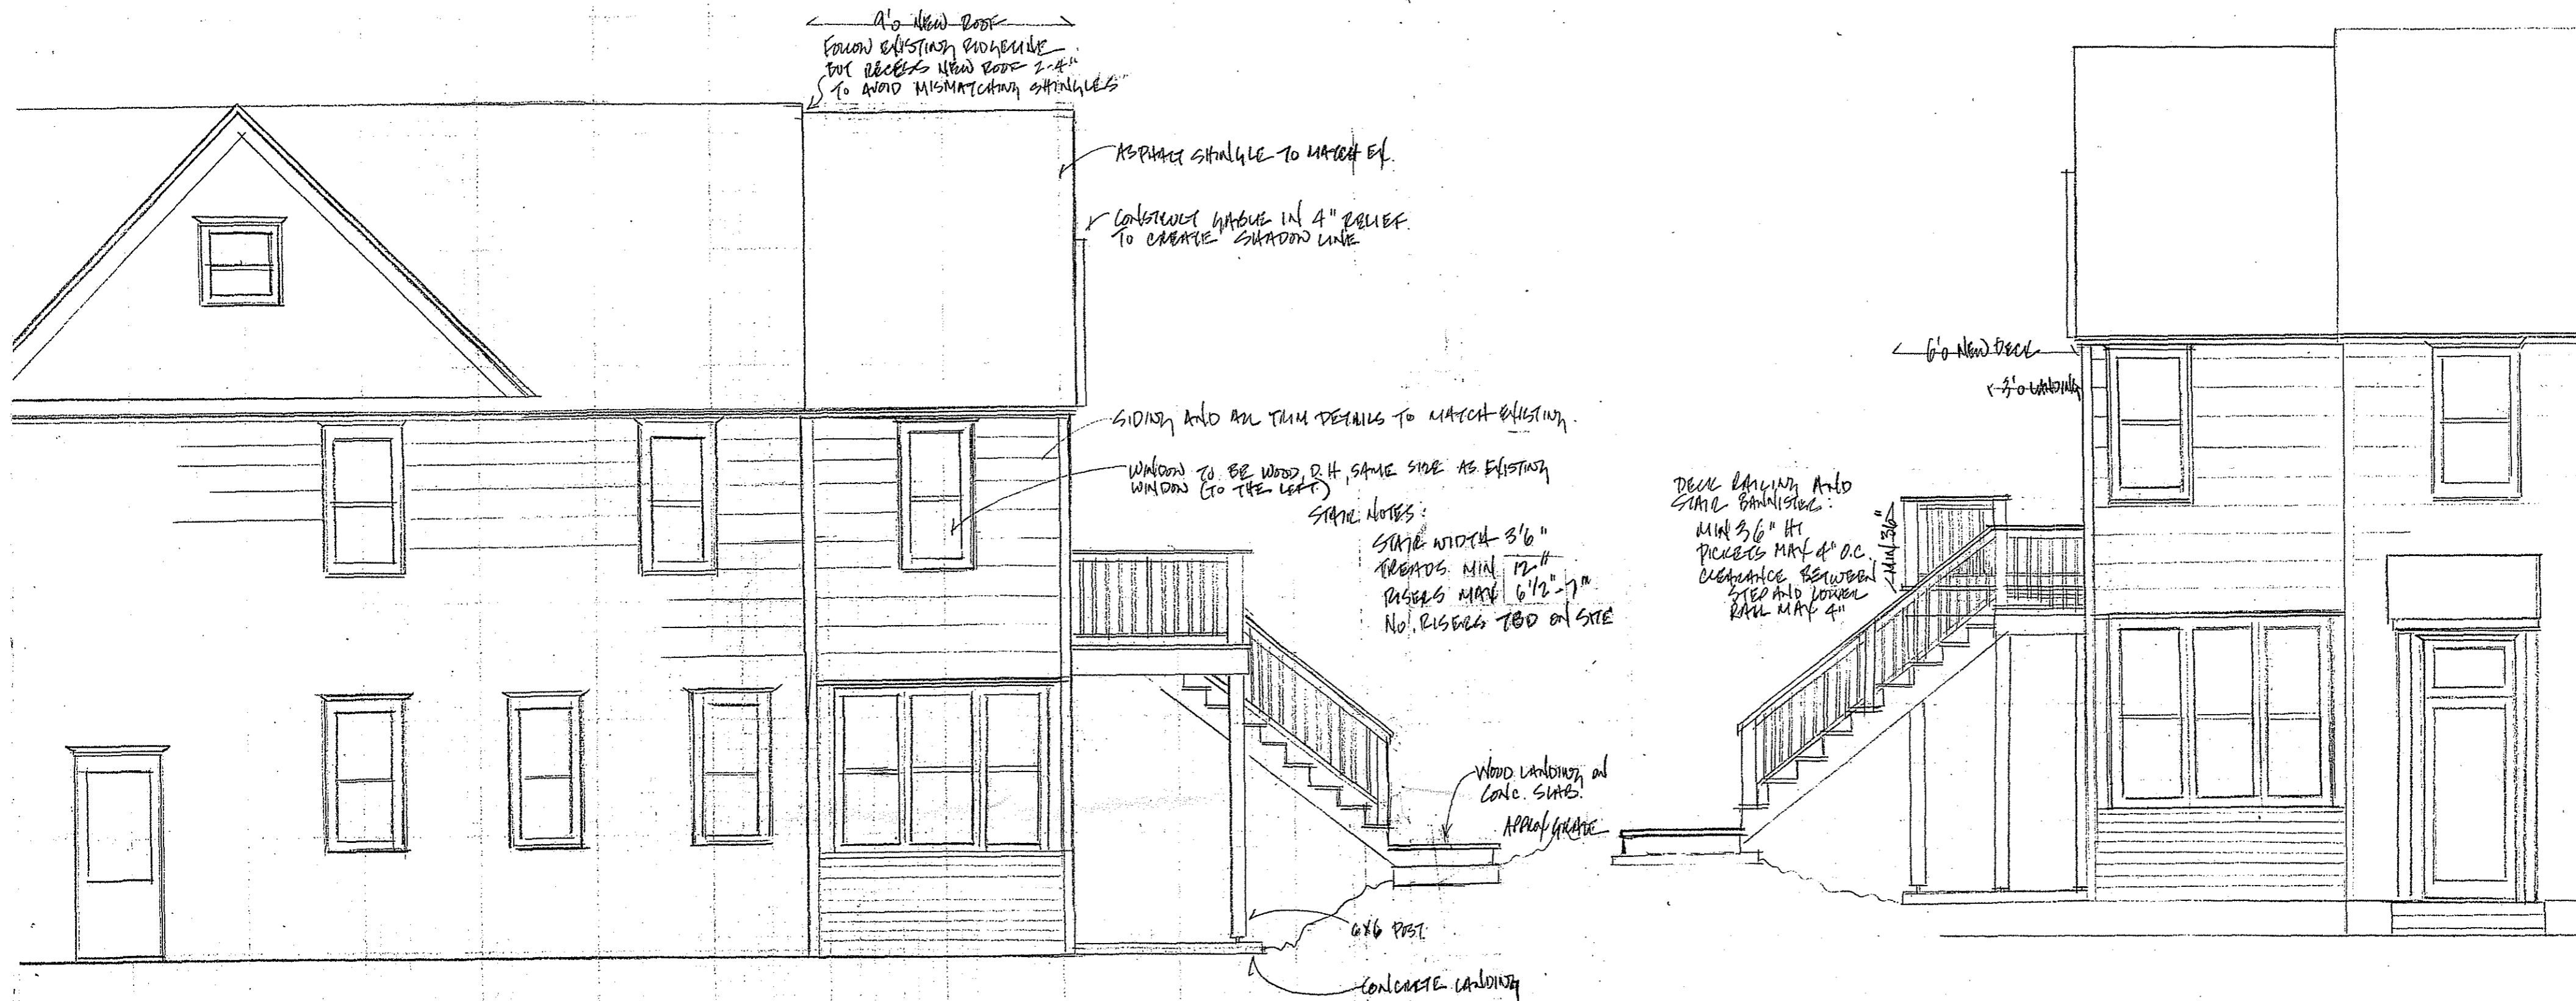 9'0 NEW ROOF
FOLLOW EXISTING RIDGELINE
BUT RECESS NEW ROOF 2-4"
TO AVOID MISMATCHING SHINGLES
ASPHALT SHINGLE TO MATCH EX.
CONSTRUCT GABLE IN 4" RELIEF
TO CREATE SHADOW LINE
SIDING AND ALL TRIM DETAILS TO MATCH EXISTING.
WINDOW TO BE WOOD, D.H, SAME SIZE AS EXISTING
WINDOW (TO THE LEFT)
STAIR NOTES:
STAIR WIDTH 3'6"
TREADS MIN 12"
RISERS MAX 6 1/2"-7"
NO. RISERS TBD ON SITE
WOOD LANDING ON
CONC. SLAB.
APPROX GRADE
6X6 POST
CONCRETE LANDING
6'0 NEW DECK
3'0 LANDING
DECK RAILING AND
STAIR BANNISTER:
MIN 36" HT
PICKETS MAX 4" O.C.
CLEARANCE BETWEEN
STEP AND LOWER
RAIL MAX 4"
MIN 36"